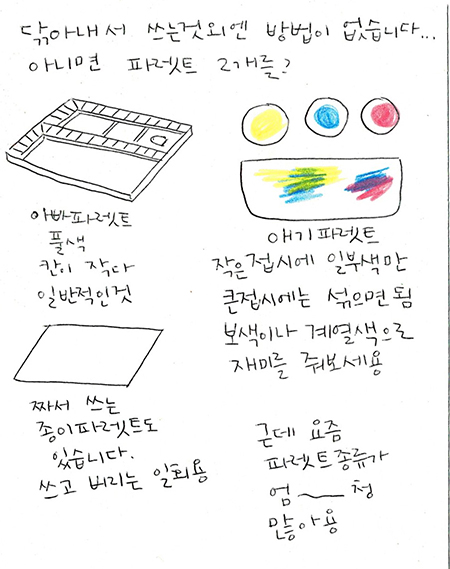 닦아내서 쓰는것외엔 방법이 없습니다...
아니면 파레트 2개를?
아빠파레트
풀색
칸이 작다
일반적인것
애기파레트
작은접시에 일부색만
큰접시에는 섞으면됨
보색이나 계열색으로
재미를 줘보세용
짜서 쓰는
종이파레트도
있습니다.
쓰고 버리는 일회용
근데 요즘
파레트종류가
엄——청
많아용